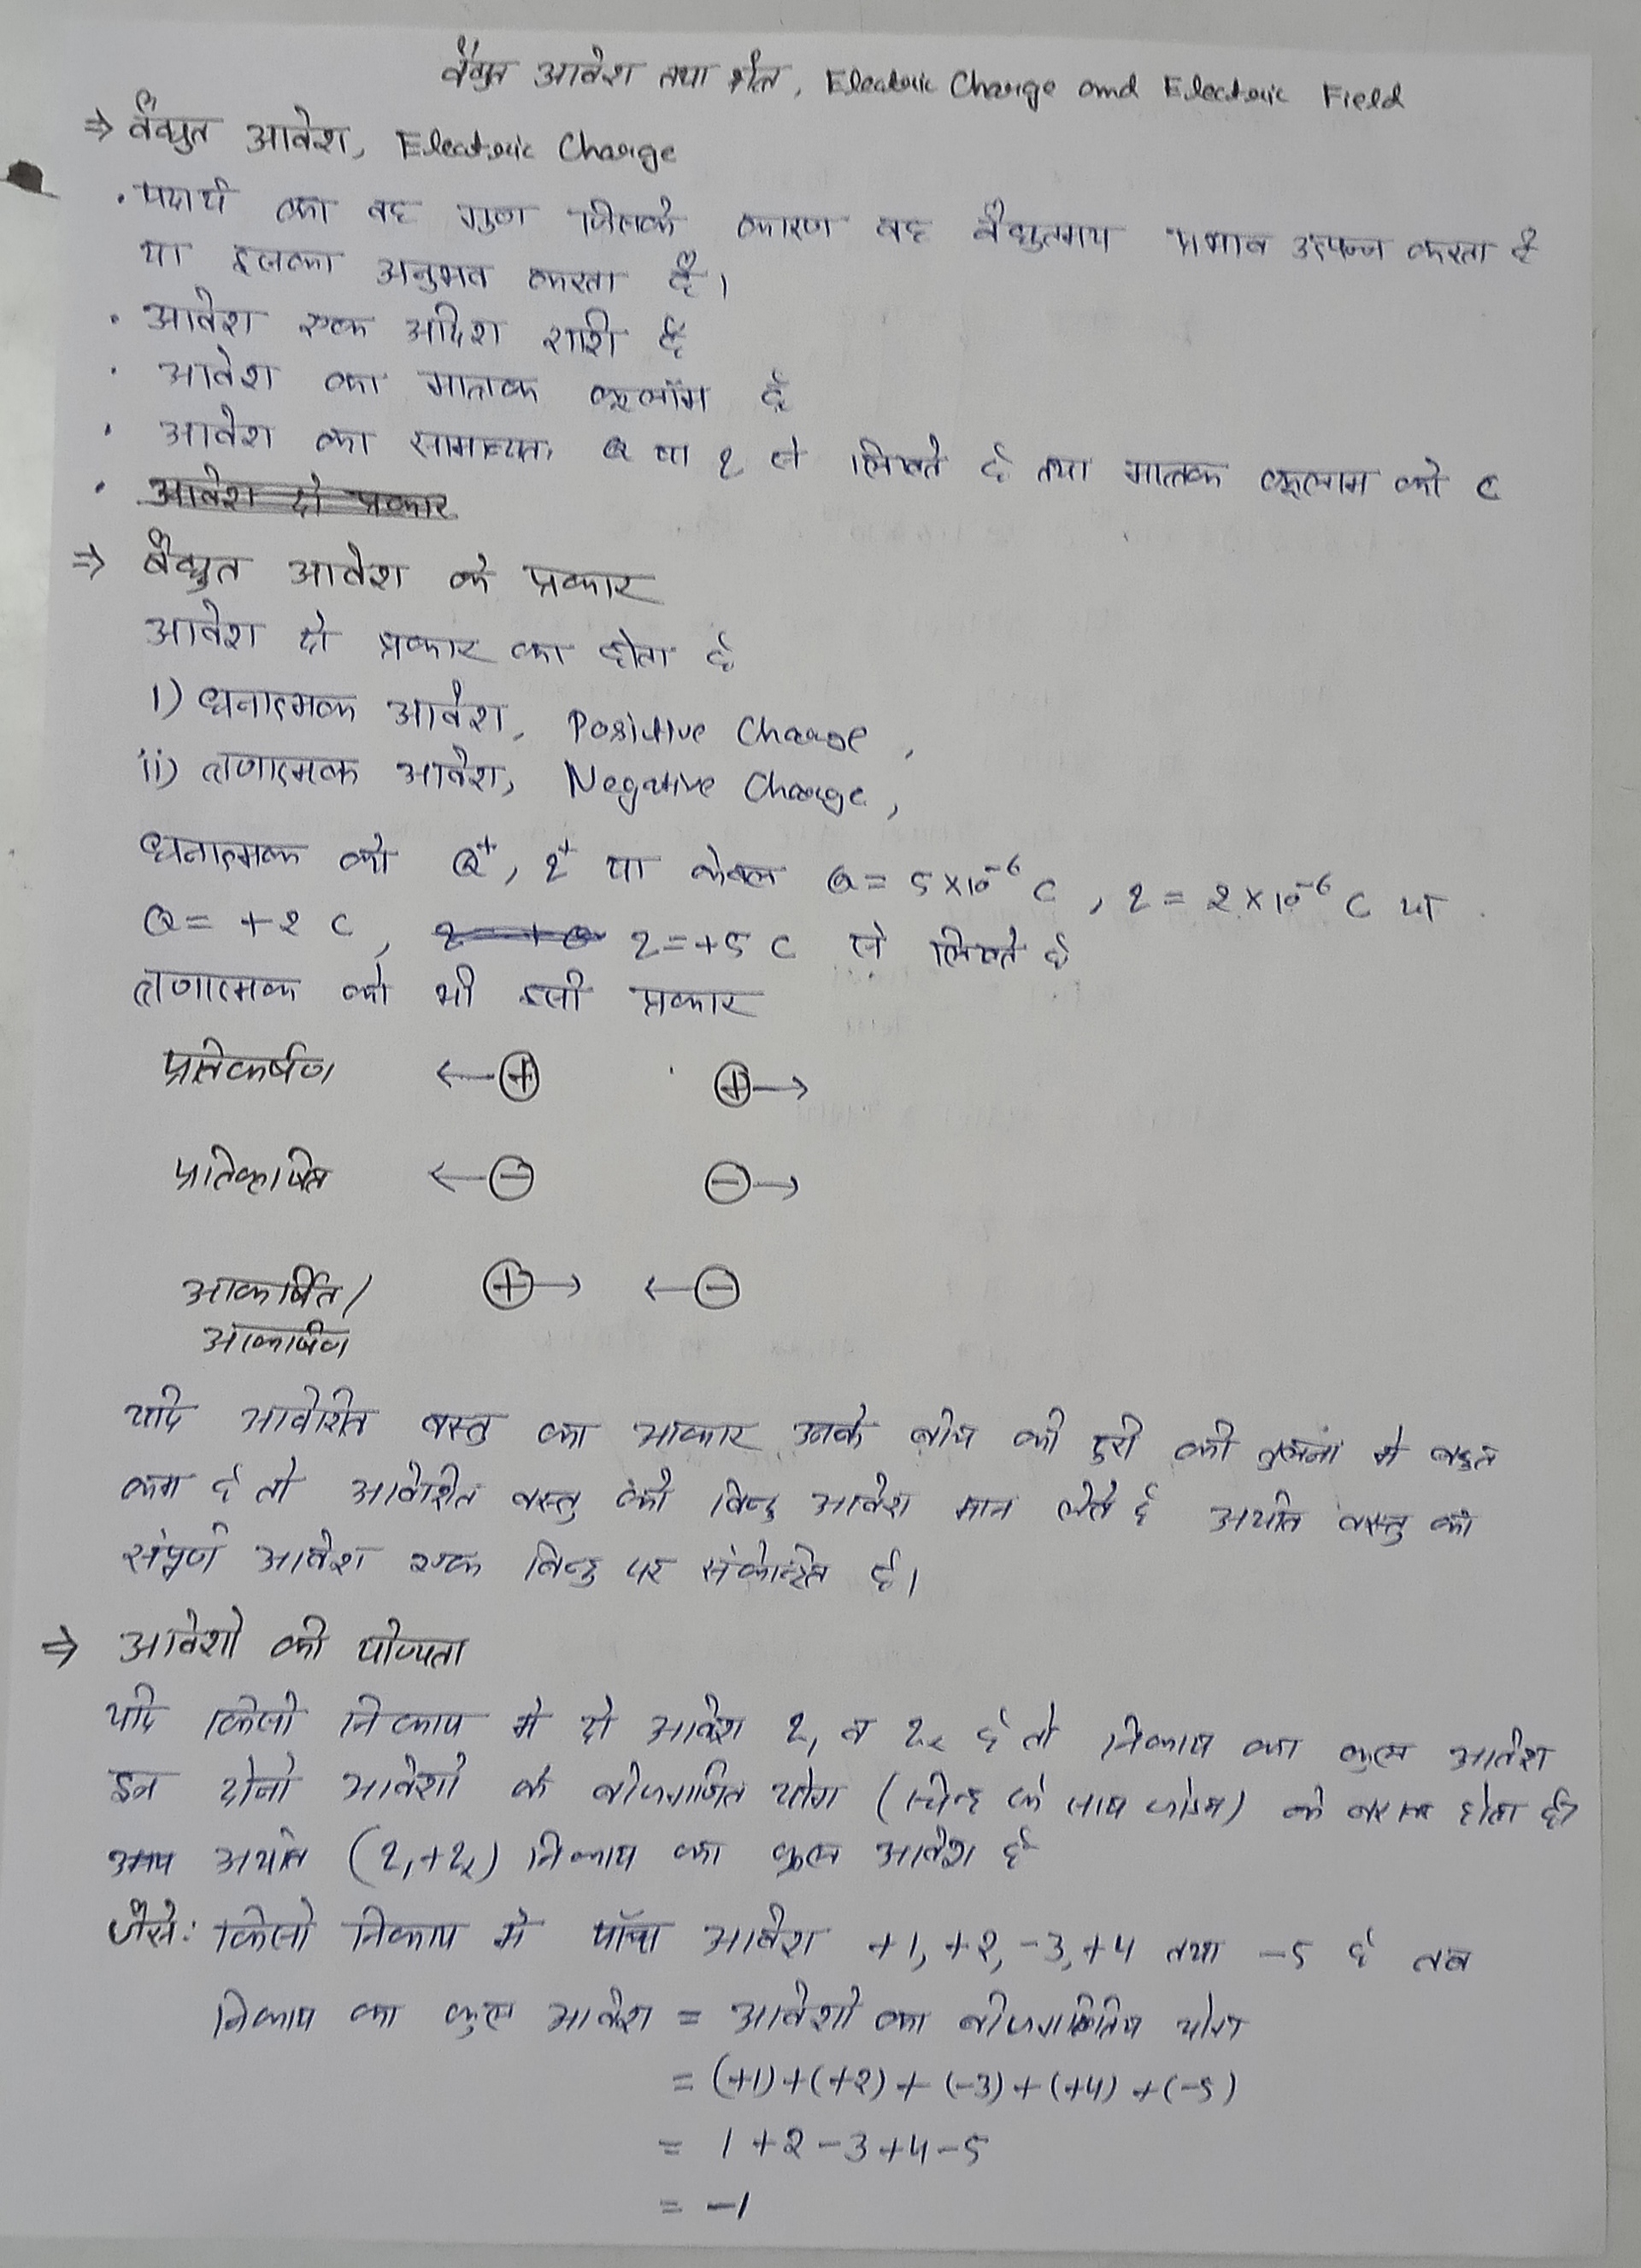 वैद्युत आवेश तथा क्षेत्र, Electric Charge and Electric Field
⇒ वैद्युत आवेश, Electric Charge
· पदार्थ का वह गुण जिसके कारण वह वैद्युतमय प्रभाव उत्पन्न करता है
या इसका अनुभव करता है।
· आवेश एक अदिश राशि है
· आवेश का मात्रक कूलॉम है
· आवेश का सामान्यतः Q या q से लिखते है तथा मात्रक कूलाम को C
· आवेश दो प्रकार
⇒ वैद्युत आवेश के प्रकार
आवेश दो प्रकार का होता है
i) धनात्मक आवेश, Positive Charge,
ii) ऋणात्मक आवेश, Negative Charge,
धनात्मक को Q⁺, q⁺ या केवल Q = 5×10⁻⁶ C, q = 2×10⁻⁶ C या
Q = +2 C, q = +5 C से लिखते है
ऋणात्मक को भी इसी प्रकार
प्रतिकर्षण ←⊕ ⊕→
प्रतिकर्षित ←⊖ ⊖→
आकर्षित/ ⊕→ ←⊖
आकर्षण
यदि आवेशित वस्तु का आकार उनके बीच की दूरी की तुलना मे बहुत
कम है तो आवेशित वस्तु को बिन्दु आवेश मान लेते है अर्थात वस्तु का
संपूर्ण आवेश एक बिन्दु पर संकेन्द्रित है।
⇒ आवेशो की योज्यता
यदि किसी निकाय मे दो आवेश q₁ व q₂ है तो निकाय का कुल आवेश
इन दोनो आवेशो के बीजगणित योग (चिन्ह के साथ जोडना) के बराबर होता है।
अर्थात (q₁+q₂) निकाय का कुल आवेश है
जैसे: किसी निकाय मे पाँच आवेश +1, +2, -3, +4 तथा -5 है तब
निकाय का कुल आवेश = आवेशो का बीजगणितिय योग
= (+1)+(+2)+(-3)+(+4)+(-5)
= 1+2-3+4-5
= -1